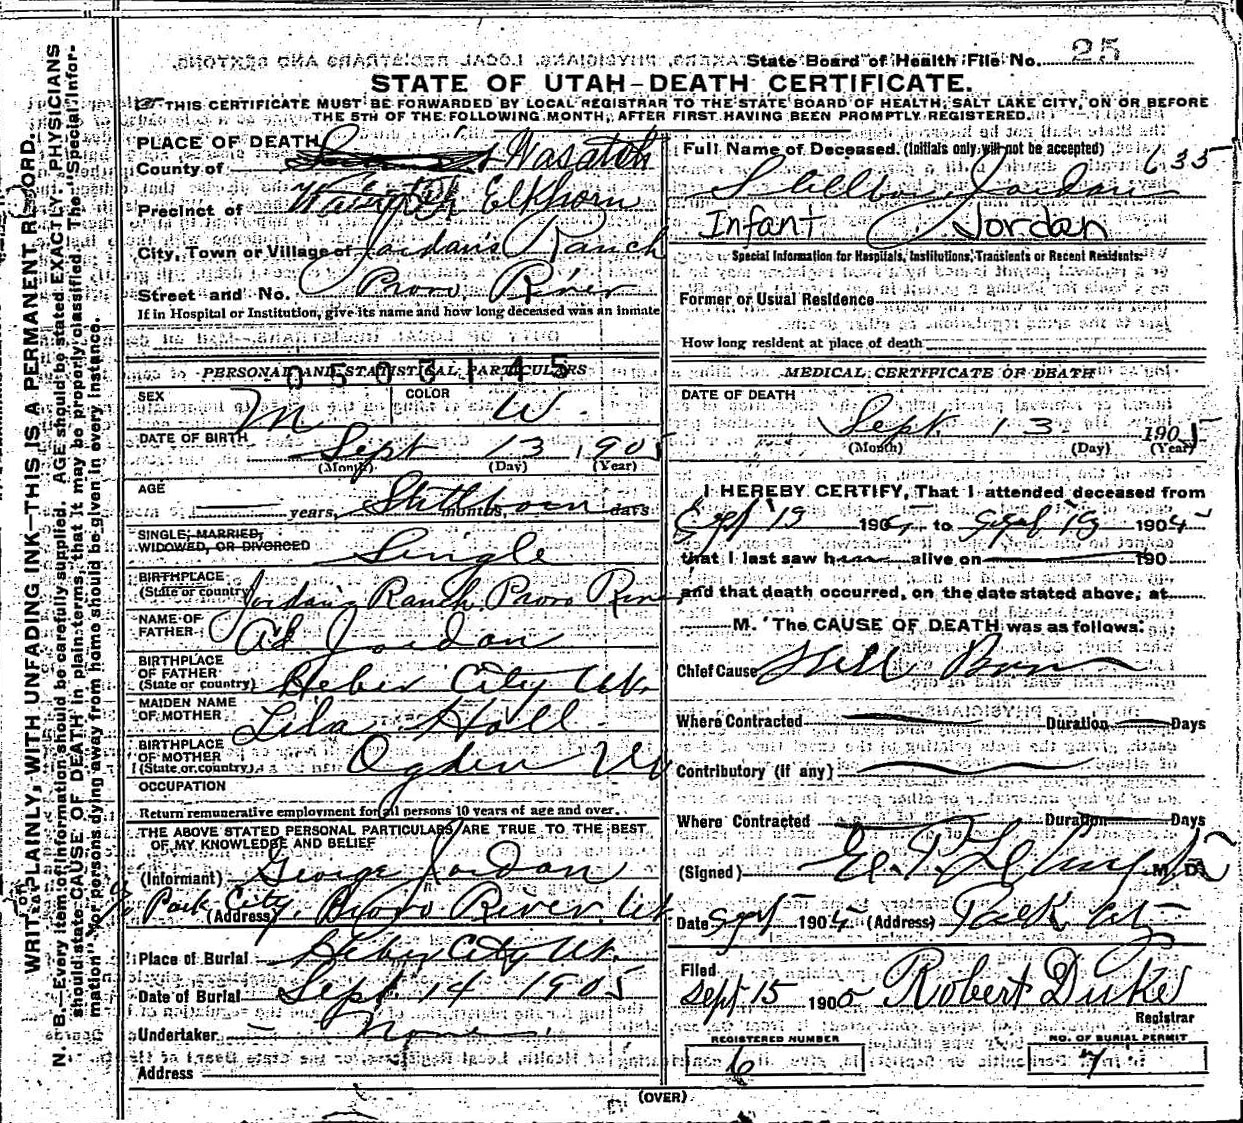 State Board of Health File No. 25
STATE OF UTAH–DEATH CERTIFICATE.
THIS CERTIFICATE MUST BE FORWARDED BY LOCAL REGISTRAR TO THE STATE BOARD OF HEALTH, SALT LAKE CITY, ON OR BEFORE
THE 5TH OF THE FOLLOWING MONTH, AFTER FIRST HAVING BEEN PROMPTLY REGISTERED.
WRITE PLAINLY, WITH UNFADING INK—THIS IS A PERMANENT RECORD.
N. B.—Every item of information should be carefully supplied. AGE should be stated EXACTLY. PHYSICIANS
should state CAUSE OF DEATH in plain terms, that it may be properly classified. The "Special Infor-
mation" for persons dying away from home should be given in every instance.
PLACE OF DEATH
County of Wasatch
Precinct of Elkhorn
City, Town or Village of Jordan's Ranch
Street and No. Provo River
If in Hospital or Institution, give its name and how long deceased was an inmate
PERSONAL AND STATISTICAL PARTICULARS
0503145
SEX M COLOR W.
DATE OF BIRTH Sept 13 1905
(Month) (Day) (Year)
AGE years, months, days
Stillborn
SINGLE, MARRIED,
WIDOWED, OR DIVORCED Single
BIRTHPLACE
(State or country) Jordan's Ranch, Provo River
NAME OF
FATHER Ad Jordan
BIRTHPLACE
OF FATHER
(State or country) Heber City Ut.
MAIDEN NAME
OF MOTHER Lila Holl
BIRTHPLACE
OF MOTHER
(State or country) Ogden Ut
OCCUPATION
Return remunerative employment for all persons 10 years of age and over.
THE ABOVE STATED PERSONAL PARTICULARS ARE TRUE TO THE BEST
OF MY KNOWLEDGE AND BELIEF
(Informant) George Jordan
Park City,
(Address) Provo River, Ut
Place of Burial Heber City Ut.
Date of Burial Sept. 14 1905
Undertaker None.
Address
Full Name of Deceased. (Initials only will not be accepted) 635
Jordan
Infant Jordan
Special Information for Hospitals, Institutions, Transients or Recent Residents:
Former or Usual Residence
How long resident at place of death
MEDICAL CERTIFICATE OF DEATH
DATE OF DEATH
Sept. 13 1905
(Month) (Day) (Year)
I HEREBY CERTIFY, That I attended deceased from
Sept 13 1905 to Sept 13 1905
that I last saw him alive on 190
and that death occurred, on the date stated above, at
M. The CAUSE OF DEATH was as follows:
Chief Cause Still Born
Where Contracted Duration Days
Contributory (if any)
Where Contracted Duration Days
(Signed) M. D.
Date Sept 1905 (Address) Park City
Filed
Sept 15 1905 Robert Duke
Registrar
REGISTERED NUMBER
6
NO. OF BURIAL PERMIT
7
(OVER)